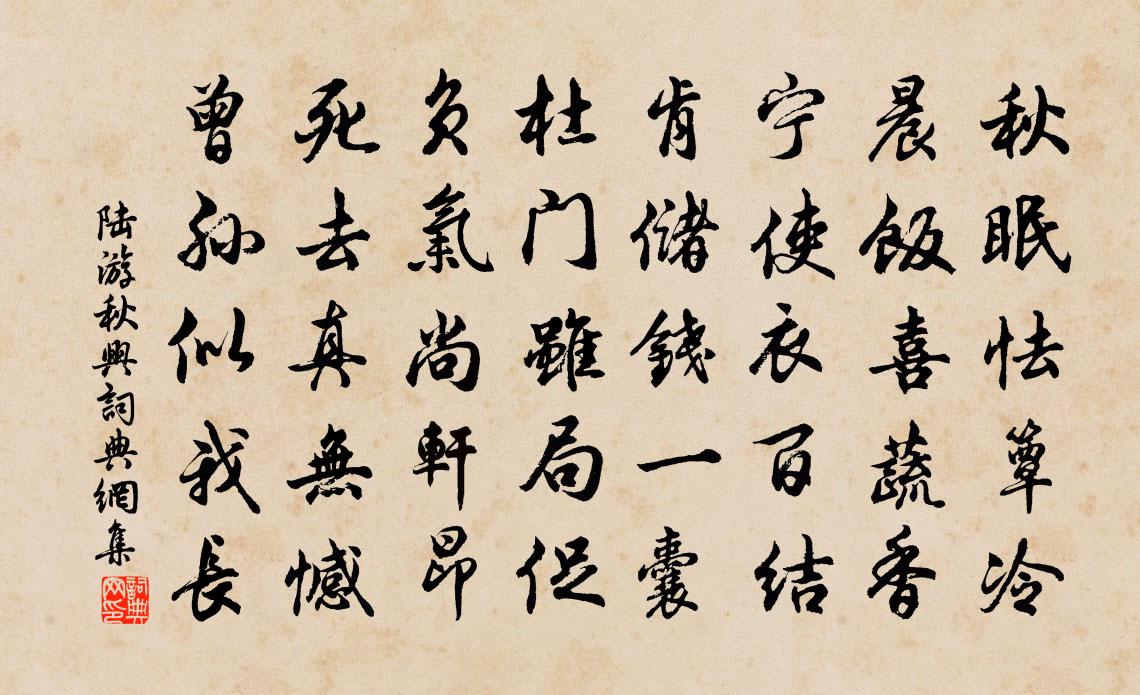 秋眠怯簟冷
晨飯喜蔬香
宁使衣百结
肯储錢一囊
杜门雖局促
负氣尚軒昂
死去真無憾
曾孙似我長
陆游秋興詞典網集
詞典网印